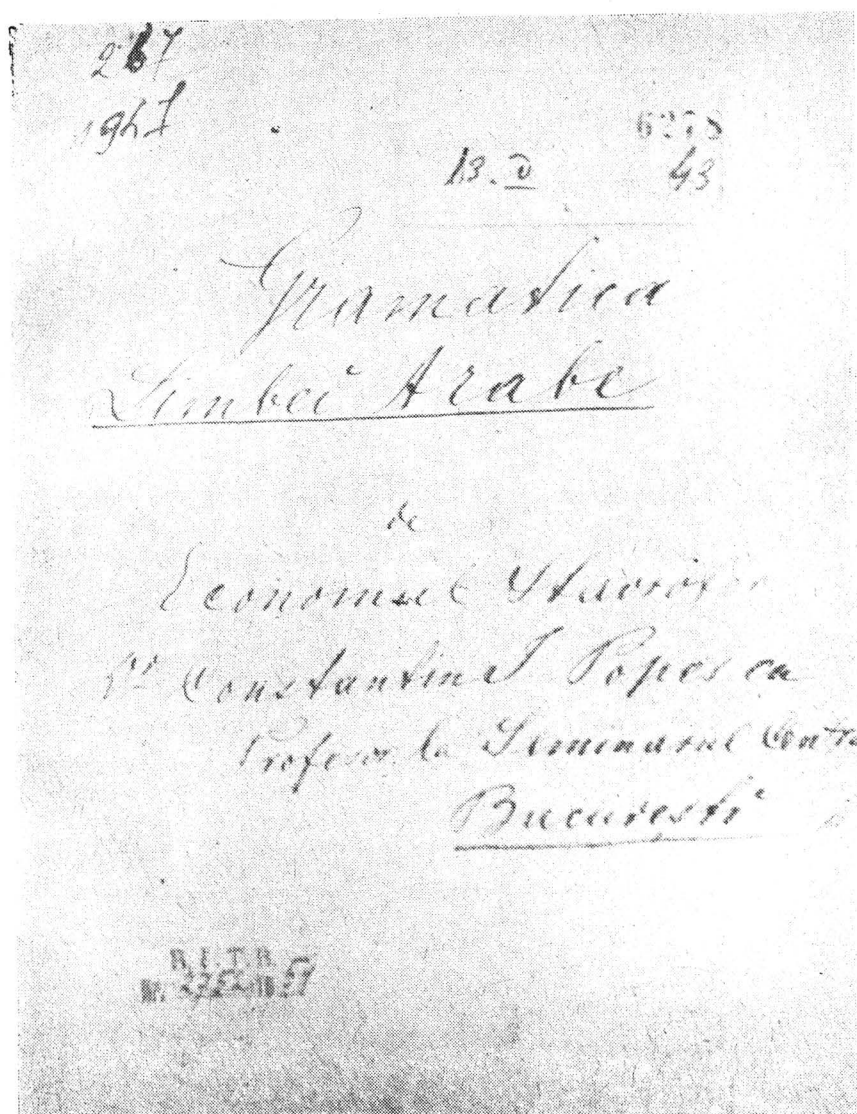 267
1947
6278
13. V 43
Gramatica
Limbei Arabe
de
Economul Stavrofor
Pr Constantin I Popescu
Profesor la Seminarul Centra
Bucuresti
B. I. T. R.